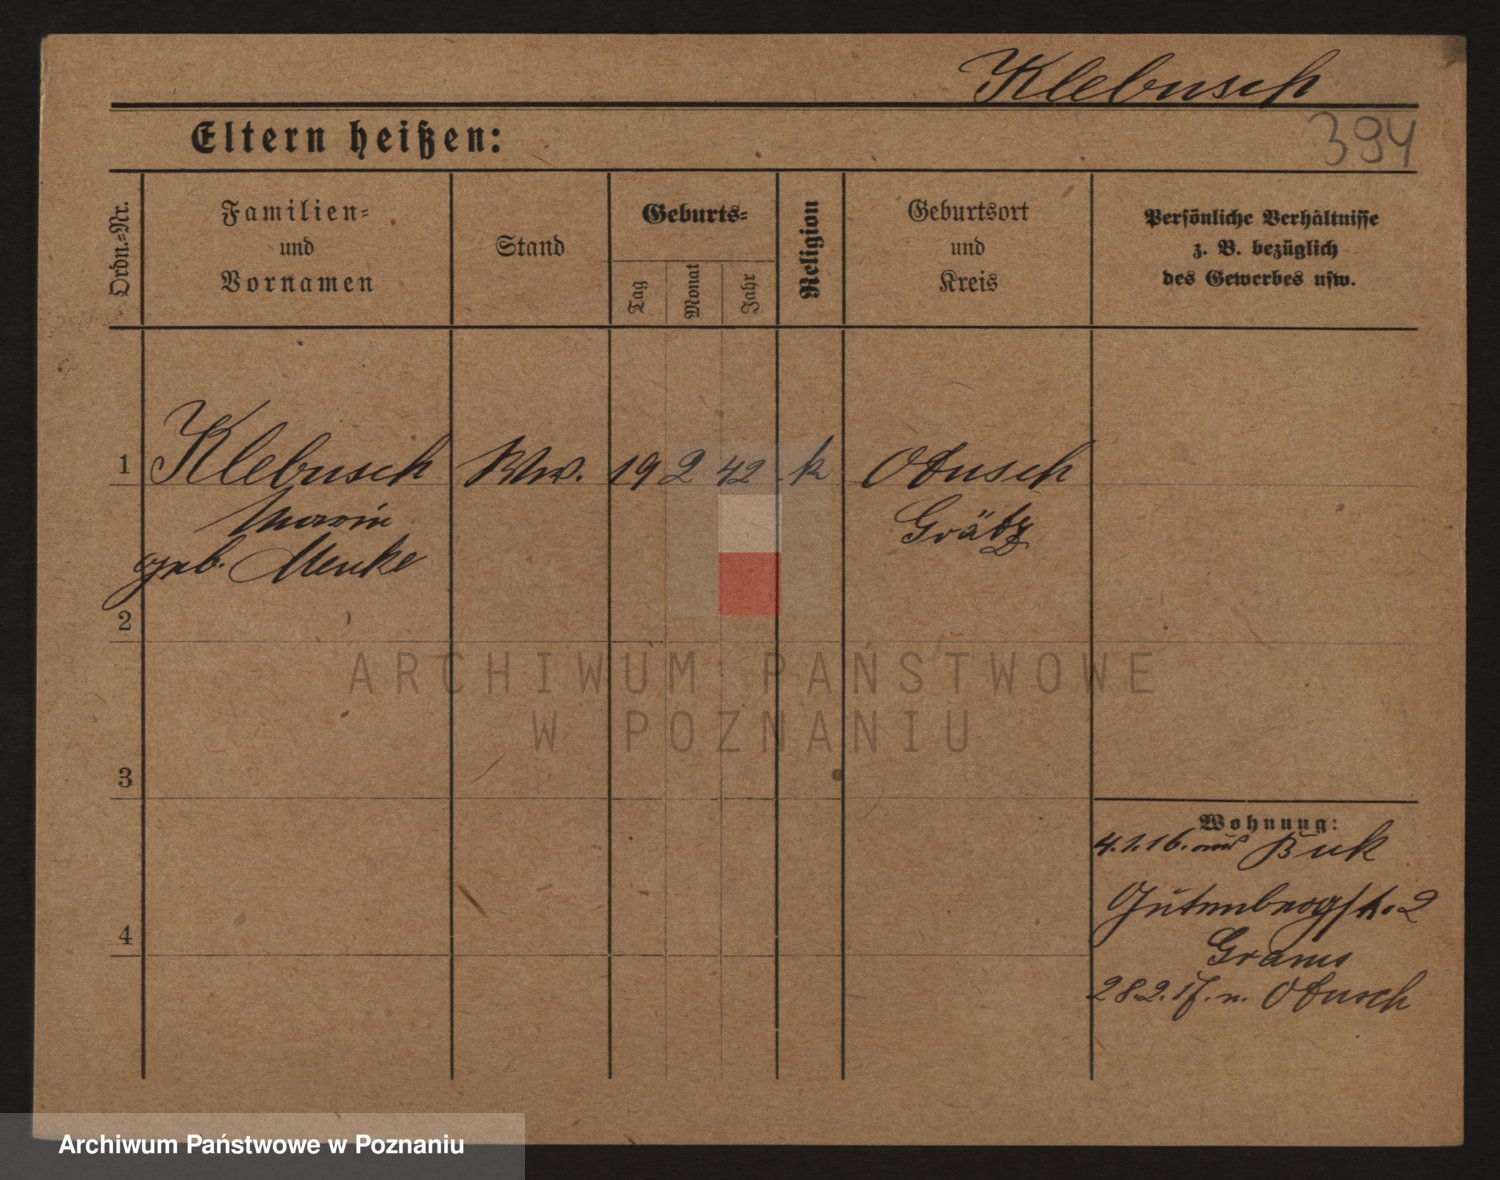 Klebusch
394
Eltern heißen:
Ordn.-Nr.
Familien-
und
Vornamen
Stand
Geburts-
Tag
Monat
Jahr
Religion
Geburtsort
und
Kreis
Persönliche Verhältnisse
z. B. bezüglich
des Gewerbes usw.
1 Klebusch Ww. 19 2 42 k Otusch
Maria Grätz
geb. Menke
2
3
4
Wohnung:
4.1.16. aus Buk
Gutenbergstr. 2
Grams
28.2.17. n. Otusch
ARCHIWUM PAŃSTWOWE
W POZNANIU
Archiwum Państwowe w Poznaniu